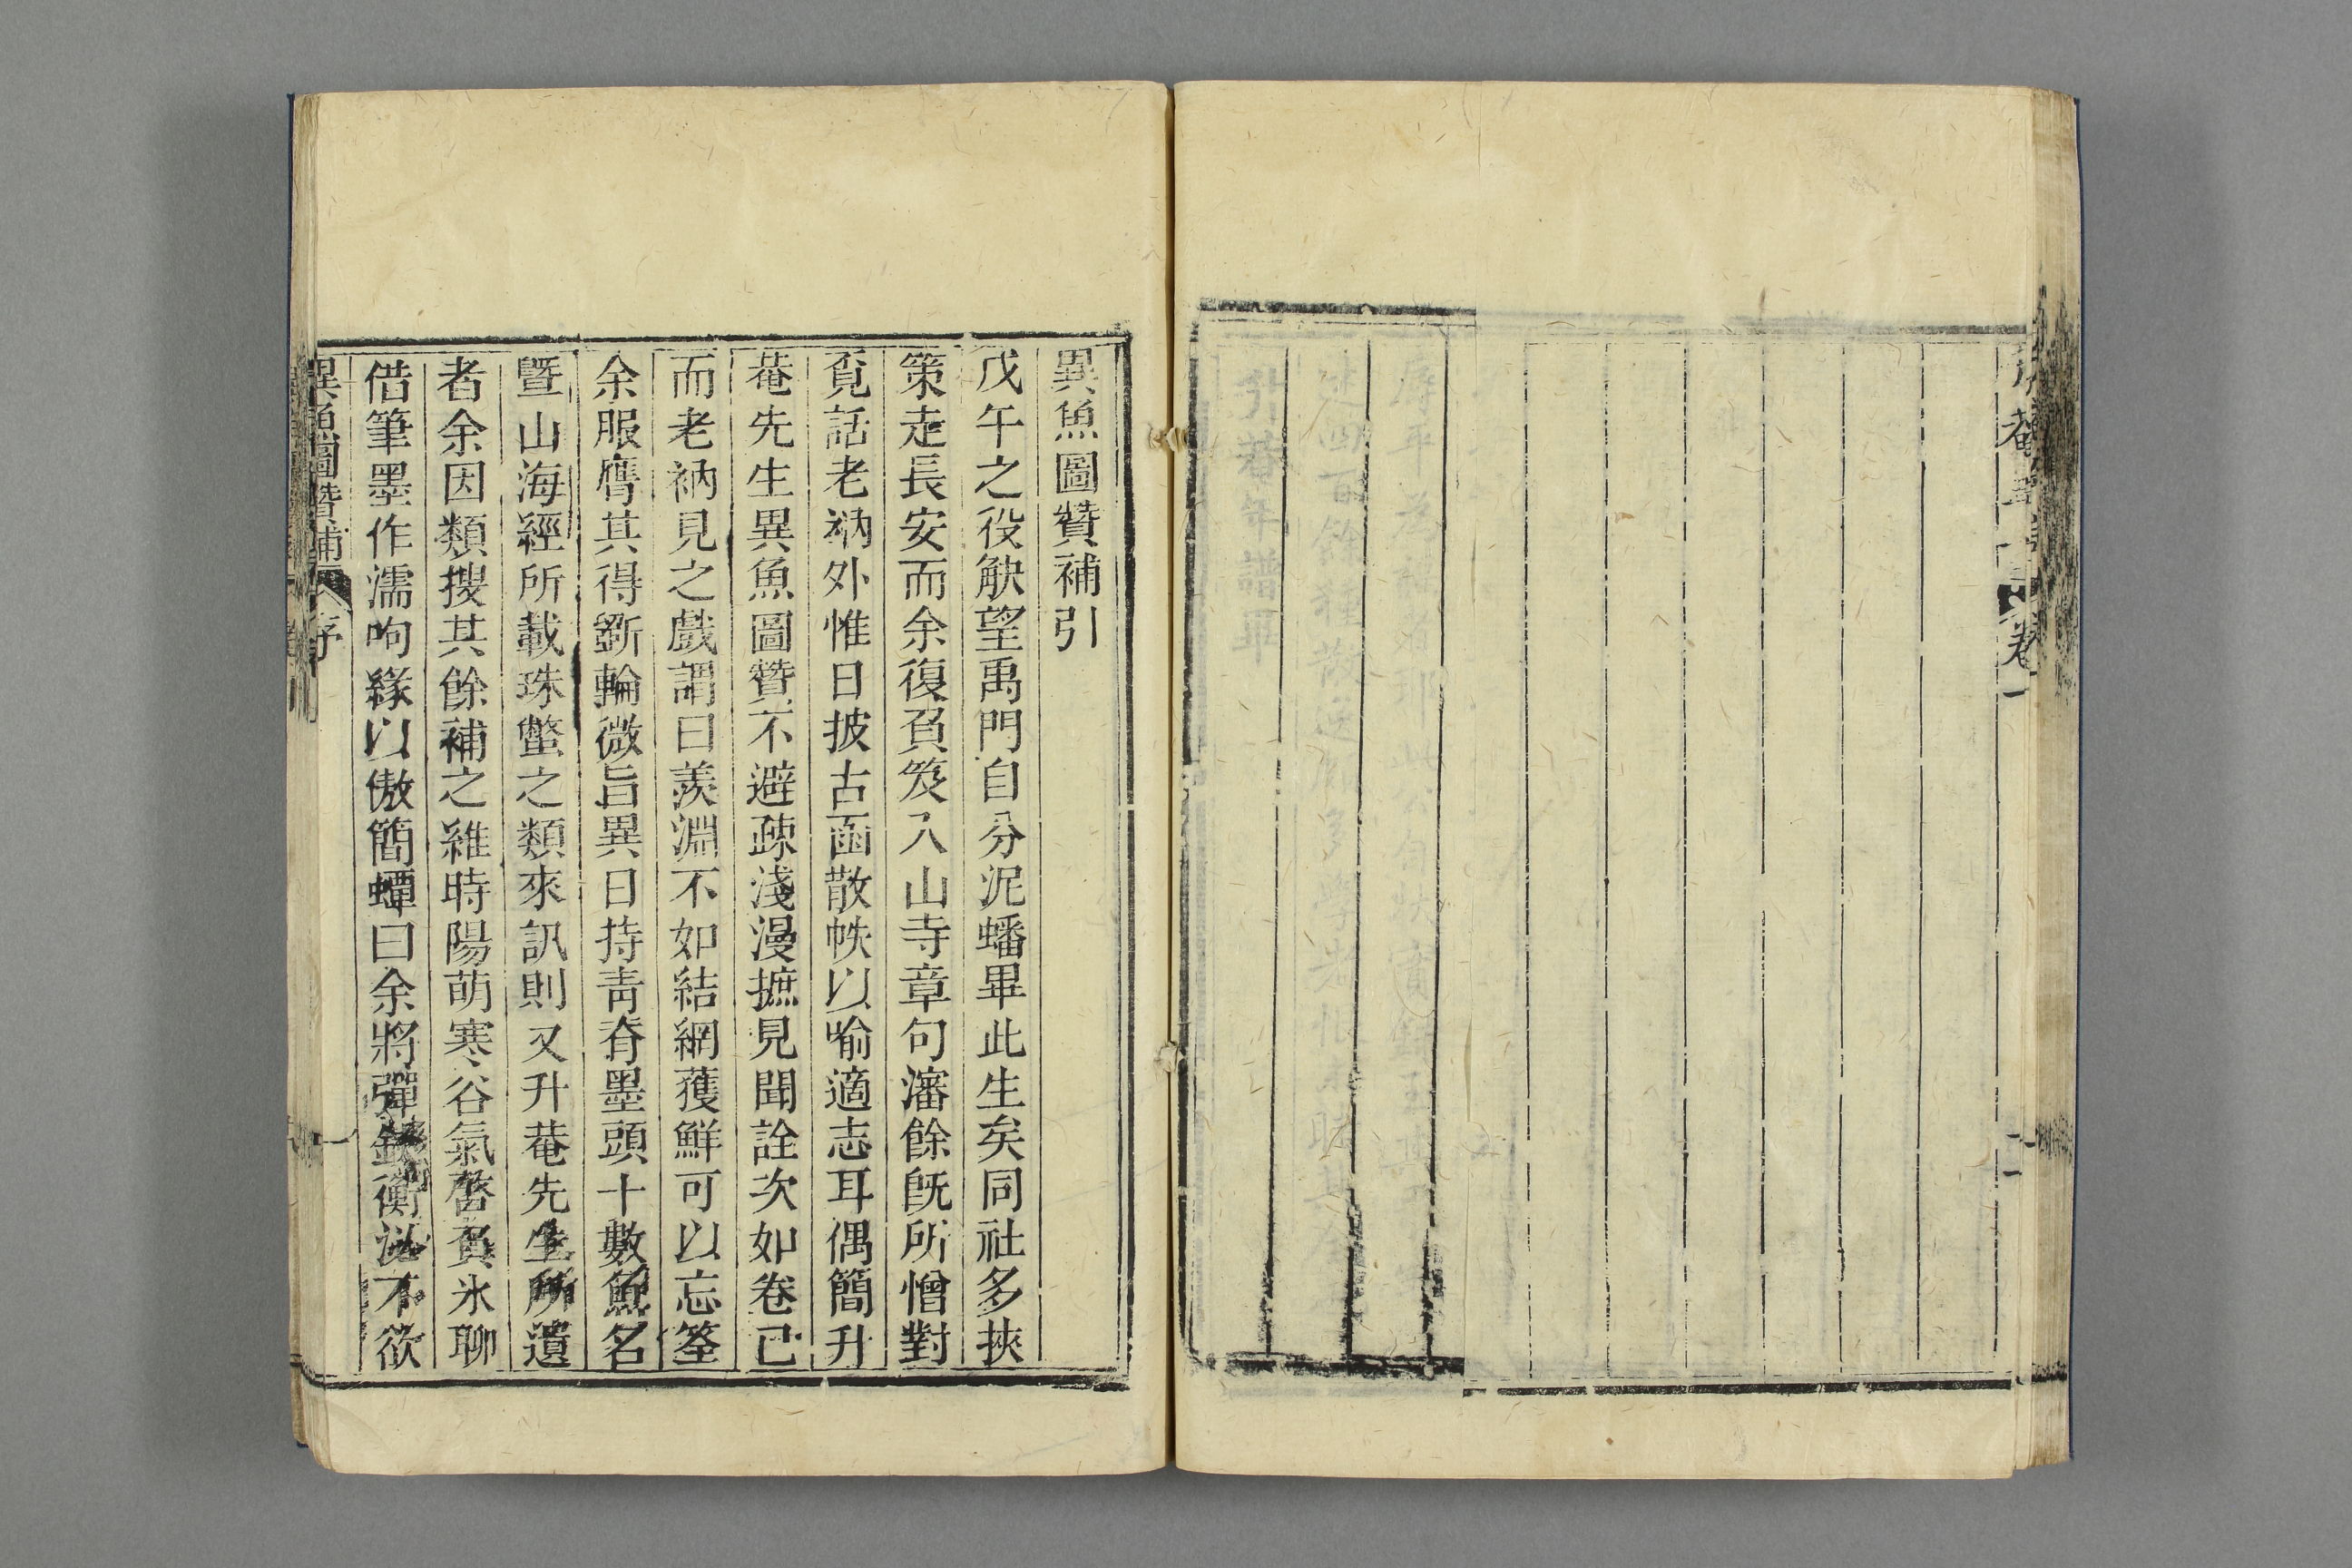 卷一
二
異魚圖贊補引
戊午之役觖望禹門自分泥蟠畢此生矣同社多挾
策走長安而余復負笈入山寺章句瀋餘旣所憎對
覓話老衲外惟日披古函散帙以喻適志耳偶簡升
菴先生異魚圖贊不避疎淺漫摭見聞詮次如卷已
而老衲見之戲謂曰羨淵不如結網獲鮮可以忘筌
余服膺其得斵輪微旨異日持靑脊墨頭十數魚名
曁山海經所載珠蟞之類來訊則又升菴先生所遺
者余因類搜其餘補之維時陽萌寒谷氣啓負氷聊
借筆墨作濡呴緣以傲簡蟫曰余將彈鋏衡泌不欲
異魚圖贊補 序
一